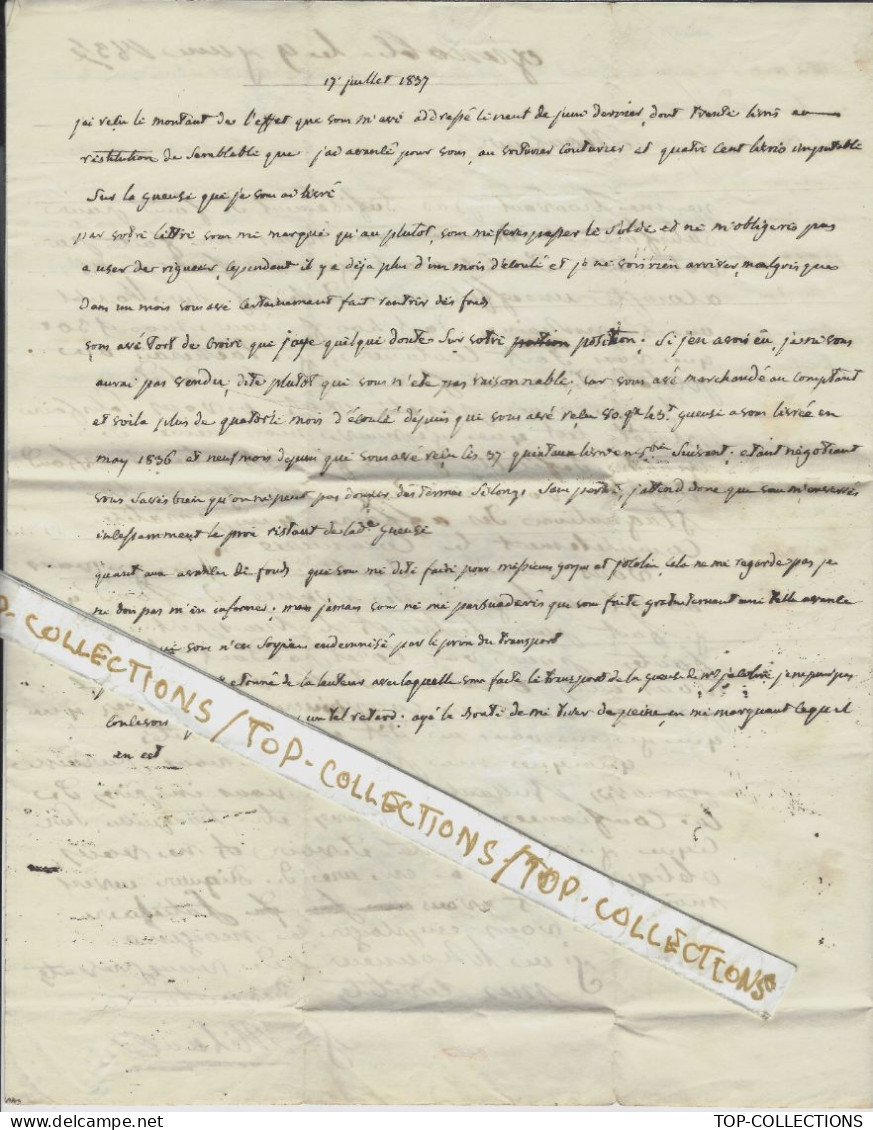 17 juillet 1837
jai reçu le montant de l'effet que vous m'avé addressé le vent de juin dernier, dont trente livres au
restitution de semblable que j'ai avancé pour vous, au couturier et quatre cent livres imputable
sur la gueuse que je vous ai livré
par votre lettre vous me marqué qu'au plutot, vous me feres passer le solde et ne m'obligeres pas
a user des rigueur, cependant il y a déja plus d'un mois d'écoulé et je ne vois rien arriver, malgres que
dans un mois vous avé certainement fait rentrir des fonds
vous avé tort de croire que j'aye quelque doute sur votre position. Si j'en avois eu, je ne vous
aurai pas vendu, dite plutot que vous n'ete pas raisonnable, car vous avé marchandé au comptant
et voila plus de quatorze mois d'écoulé depuis que vous avé reçu gueuse a vous livrée en
may 1836 et neuf mois depuis que vous avé reçu les 37 quintaux livré en suivant. etant négotiant
vous savés bien qu'on ne peut pas donner des termes si longs sans perte, j'attend donc que vous m'enverrés
incessamment le restant de lade gueuse
quant aux avances de fonds que vous me dite faire pour messieurs et cela ne me regarde pas je
ne dois pas m'en informer. mais jamais vous ne me persuaderés que vous faite gratuitement une telle avance
vous n'en soyiez endemnisé par le du transport
etonné de la lenteur avec laquelle vous faite le transport de la gueuse de mr je ne puis pas
un tel retard. ayé la bonté de me tirer de peine, en me marquant ce qu'il
en est
P-COLLECTIONS / TOP-COLLECTIONS / TOP-COLLECTIONS
TOP-COLLECTIONS